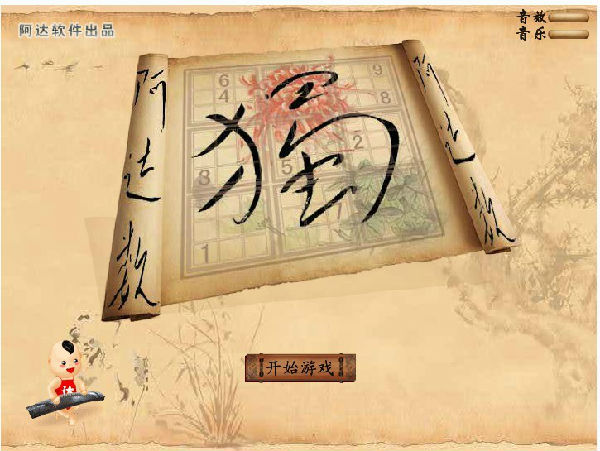 阿达软件出品
音效
音乐
阿达数
獨
阿达数
6
9
4
8
2
8
5
1
达
开始游戏